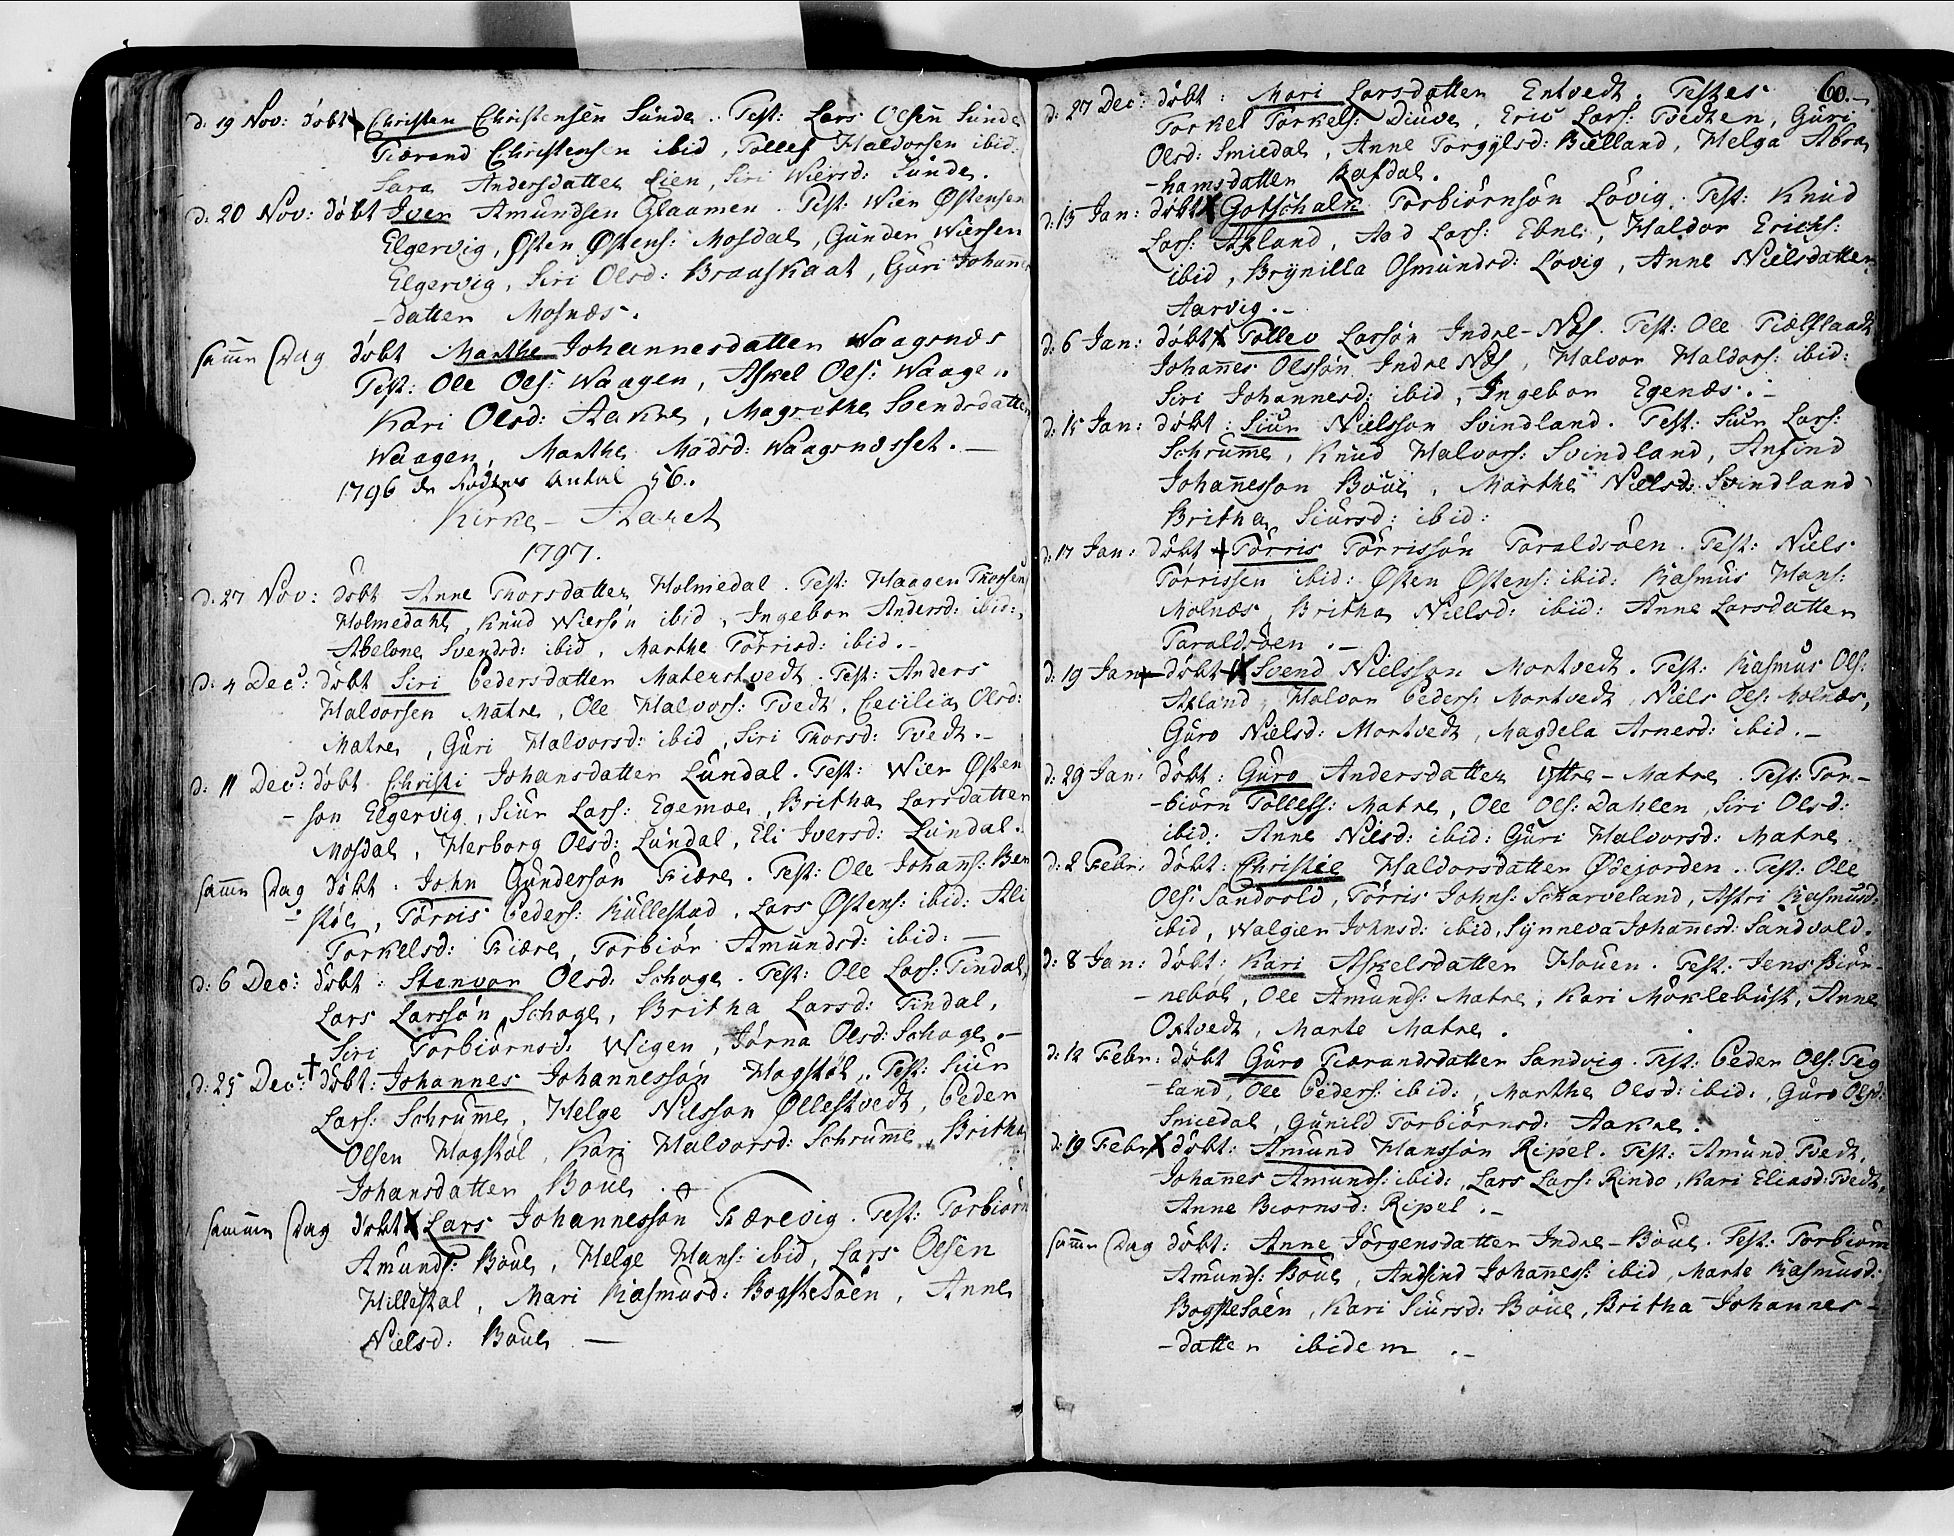 d: 19 Nov: døbt Christen Christensen Sunde. Test: Lars Olsen Sunde
Tiærand Christensen ibid, Tollef Haldorsen ibid:
Sara Andersdatter Lien, Siri Wiersd: Sunde.
d: 20 Nov: døbt Iver Amundsen Glaamen. Test: Wier Østensen
Elgervig, Østen Østens: Mosdal, Gunder Wiersen
Elgervig, Siri Olsd: Braaskaat, Guri Johannes
-datter Mosnæs.
samme Dag døbt Marthe Johannesdatter Waagsnæs
Test: Ole Ols: Waagen, Askel Ols: Waagen
Kari Olsd: Aakre, Magrithe Svendsdatter
Waagen, Marthe Madsd: Waagsnæsset. —
1796 de Fødtes Antal 56.
Kirke-Aaret
1797.
d: 27 Nov: døbt Anne Thorsdatter Holmedal. Test: Haagen Thorsen
Holmedahl, Knud Wiersøn ibid, Ingebor Andersd: ibid:,
Abelone Svendsd: ibid, Marthe Tørrisd: ibid.-
d: 4 Dec: døbt Siri Pedersdatter Materstvedt. Test: Anders
Halvorsen Matre, Ole Halvors: Tvedt, Cecilia Olsd:
Matre, Guri Halvorsd: ibid, Siri Thorsd: Tvedt.-
d: 11 Dec: døbt Christi Johansdatter Lundal. Test: Wier Østen
-søn Elgervig, Siur Lars: Egemoe, Britha Larsdatter
Mosdal, Herborg Olsd: Lundal, Eli Iversd: Lundal.
samme Dag døbt. John Gundersøn Kiære. Test: Ole Johans: Ben
-støe, Tørris Peders: Kullestad, Lars Østens: ibid: Ali
Torkelsd: Kiære, Torbiør Amundsd: ibid: —
d: 6 Dec: døbt: Stenvor Olsd: Schoge. Test: Ole Lars: Tindal,
Lars Larssøn Schoge, Britha Larsd: Tindal,
Siri Torbiørnsd: Wigen, Jørna Olsd: Schoge.-
d: 25 Dec: † døbt: Johannes Johannessøn Hogstøl. Test: Siur
Lars: Schrumme, Helge Nilsson Øllestvedt, Peder
Olsen Hogstøl, Kari Halvorsd: Schrumme, Britha
Johansdatter Boue.
samme Dag døbt Lars Johannessøn Færevig. Test: Torbiørn
Amunds: Boue, Helge Hans: ibid, Lars Olsen
Hillestal, Mari Rasmusd: Bogstesøen, Anne
Nielsd: Boue —
60.
d: 27 Dec: døbt: Mari Larsdatter Entvedt. Testes
Torkel Torkels: Diuve, Eric Lars: Tvedten, Guri
Olsd: Smiedal, Anne Torgylsd: Bielland, Helga Abra
-hamsdatter Rafdal.
d: 15 Jan: døbt Gotschalk Torbiørnsøn Løvig. Test: Knud
Lars: Axland, Aad Lars: Ebne, Haldor Erichs:
ibid, Brynilla Osmundsd: Løvig, Anne Nielsdatter
Aarvig.-
d: 6 Jan: døbt Tollev Larsøn Indre-Næs. Test: Ole Fiælflaadt
Johannes Olssøn Indre Næs, Halvor Haldors: ibid:
Siri Johannesd: ibid, Ingebor Egenæs.-
d: 15 Jan: døbt: Siur Nielsson Svindland. Test: Siur Lars:
Schrumme, Knud Halvors: Svindland, Anfind
Johannesson Boue, Marthe Nielsd: Svindland
Britha Siursd: ibid:
d: 17 Jan: døbt † Tørris Tørrissøn Taraldsøen. Test: Niels
Tørrissen ibid: Østen Østens: ibid: Rasmus Hans:
Molnæs, Britha Nielsd: ibid: Anne Larsdatter
Taraldsøen.-
d: 19 Jan døbt Svend Nielsson Mortvedt. Test: Rasmus Ols:
Axland, Haldor Peders: Mortvedt, Niels Ols: Molnæs,
Guro Nielsd: Mortvedt, Magdela Arnesd: ibid.-
d: 29 Jan: døbt: Guro Andersdatter Yttre-Matre. Test: Tor-
-biørn Tollefs: Matre, Ole Ols: Dahlen, Siri Olsd:
ibid: Anne Nilsd: ibid: Guri Halvorsd: Matre.
d: 2 Febr: døbt: Christie Haldorsdatter Ødejorden. Test: Ole
Ols: Sandvold, Tørris Johns: Scharveland, Astri Rasmusd:
ibid, Walgier Johnsd: ibid, Synneva Johannesd: Sandvold.
d: 8 Jan: døbt: Kari Askelsdatter Houen. Test: Jens Biør-
-nebol, Ole Amunds: Matre, Kari Moklebust, Anne
Oxtvedt, Marte Matre.
d: 12 Febr: døbt Guro Tiærandsdatter Sandvig. Test: Peder Ols: Teg
-land, Ole Peders: ibid:, Marthe Olsd: ibid:, Guro Olsd:
Smiedal, Gunild Torbiørnsd: Aakre.
d: 19 Febr: døbt: Amund Hanssøn Ripel. Test: Amund Tvedt,
Johannes Amunds: ibid:, Lars Lars: Rindo, Kari Eliasd: Tvedt,
Anne Biornsd: Ripel.-
samme Dag døbt: Anne Jørgensdatter Indre-Boue. Test: Torbiørn
Amunds: Boue, Andfind Johanness: ibid, Marte Rasmusd:
Bogstesøen, Kari Siursd: Boue, Britha Johannes-
-datter ibidem.-